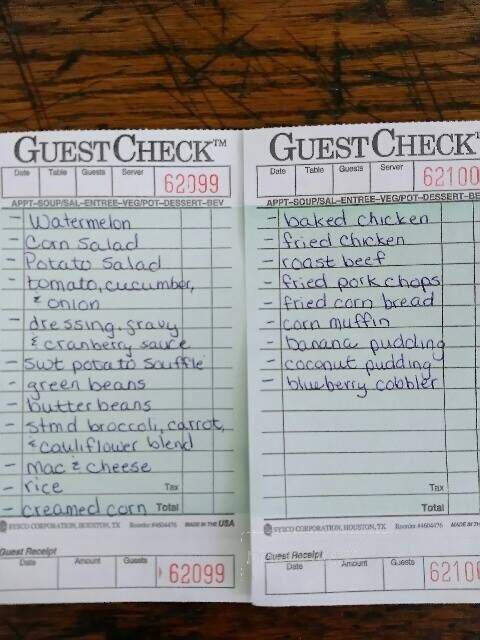 GUEST CHECK™
Date Table Guests Server 62099
APPT-SOUP/SAL-ENTREE-VEG/POT-DESSERT-BEV
- Watermelon
- Corn Salad
- Potato Salad
- tomato, cucumber,
& onion
- dressing, gravy
& cranberry sauce
- swt potato souffle
- green beans
- butterbeans
- stmd broccoli, carrot,
& cauliflower blend
- Mac & cheese
- rice Tax
- creamed corn Total
SYSCO CORPORATION, HOUSTON, TX Reorder #4604476 MADE IN THE USA
Guest Receipt
Date Amount Guests 62099
GUEST CHECK
Date Table Guests Server 62100
APPT-SOUP/SAL-ENTREE-VEG/POT-DESSERT-BEV
- baked chicken
- fried chicken
- roast beef
- fried pork chops
- fried corn bread
- corn muffin
- banana pudding
- coconut pudding
- blueberry cobbler
Tax
Total
SYSCO CORPORATION, HOUSTON, TX Reorder #4604476 MADE IN TH
Guest Receipt
Date Amount Guests 6210